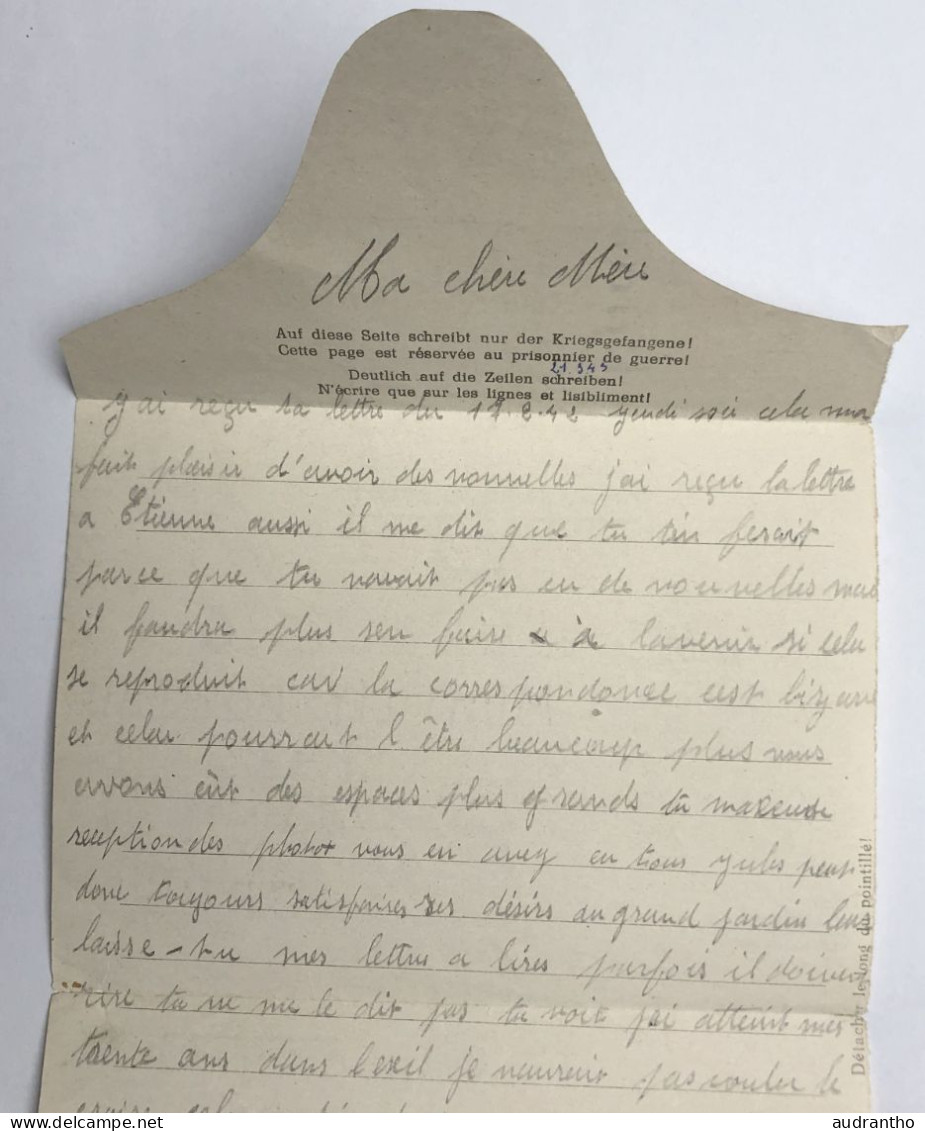 Ma chère Mère
Auf diese Seite schreibt nur der Kriegsgefangene!
Cette page est réservée au prisonnier de guerre!
21 345
Deutlich auf die Zeilen schreiben!
N'écrire que sur les lignes et lisibliment!
j'ai reçu ta lettre du 17.2.42 jeudi soir cela ma
fait plaisir d'avoir des nouvelles j'ai reçu la lettre
a Etienne aussi il me dit que tu ten ferait
parce que tu navait pas eu de nouvelles mais
il faudra plus sen faire a lavenir si cela
se reproduit car la correspondance cest bizarre
et cela pourrait l être beaucoup plus nous
avons eût des espaces plus grands tu
reception des photos vous en avez eu tous jules peut
donc toujours satisfaires ses désirs au grand jardin leur
laisse-tu mes lettre a lires parfois il doivent
rire tu ne me le dit pas tu voit j'ai atteint mes
trente ans dans l'exil je pas vouler le
croire cela
Détacher le long du pointillé!
audrantho